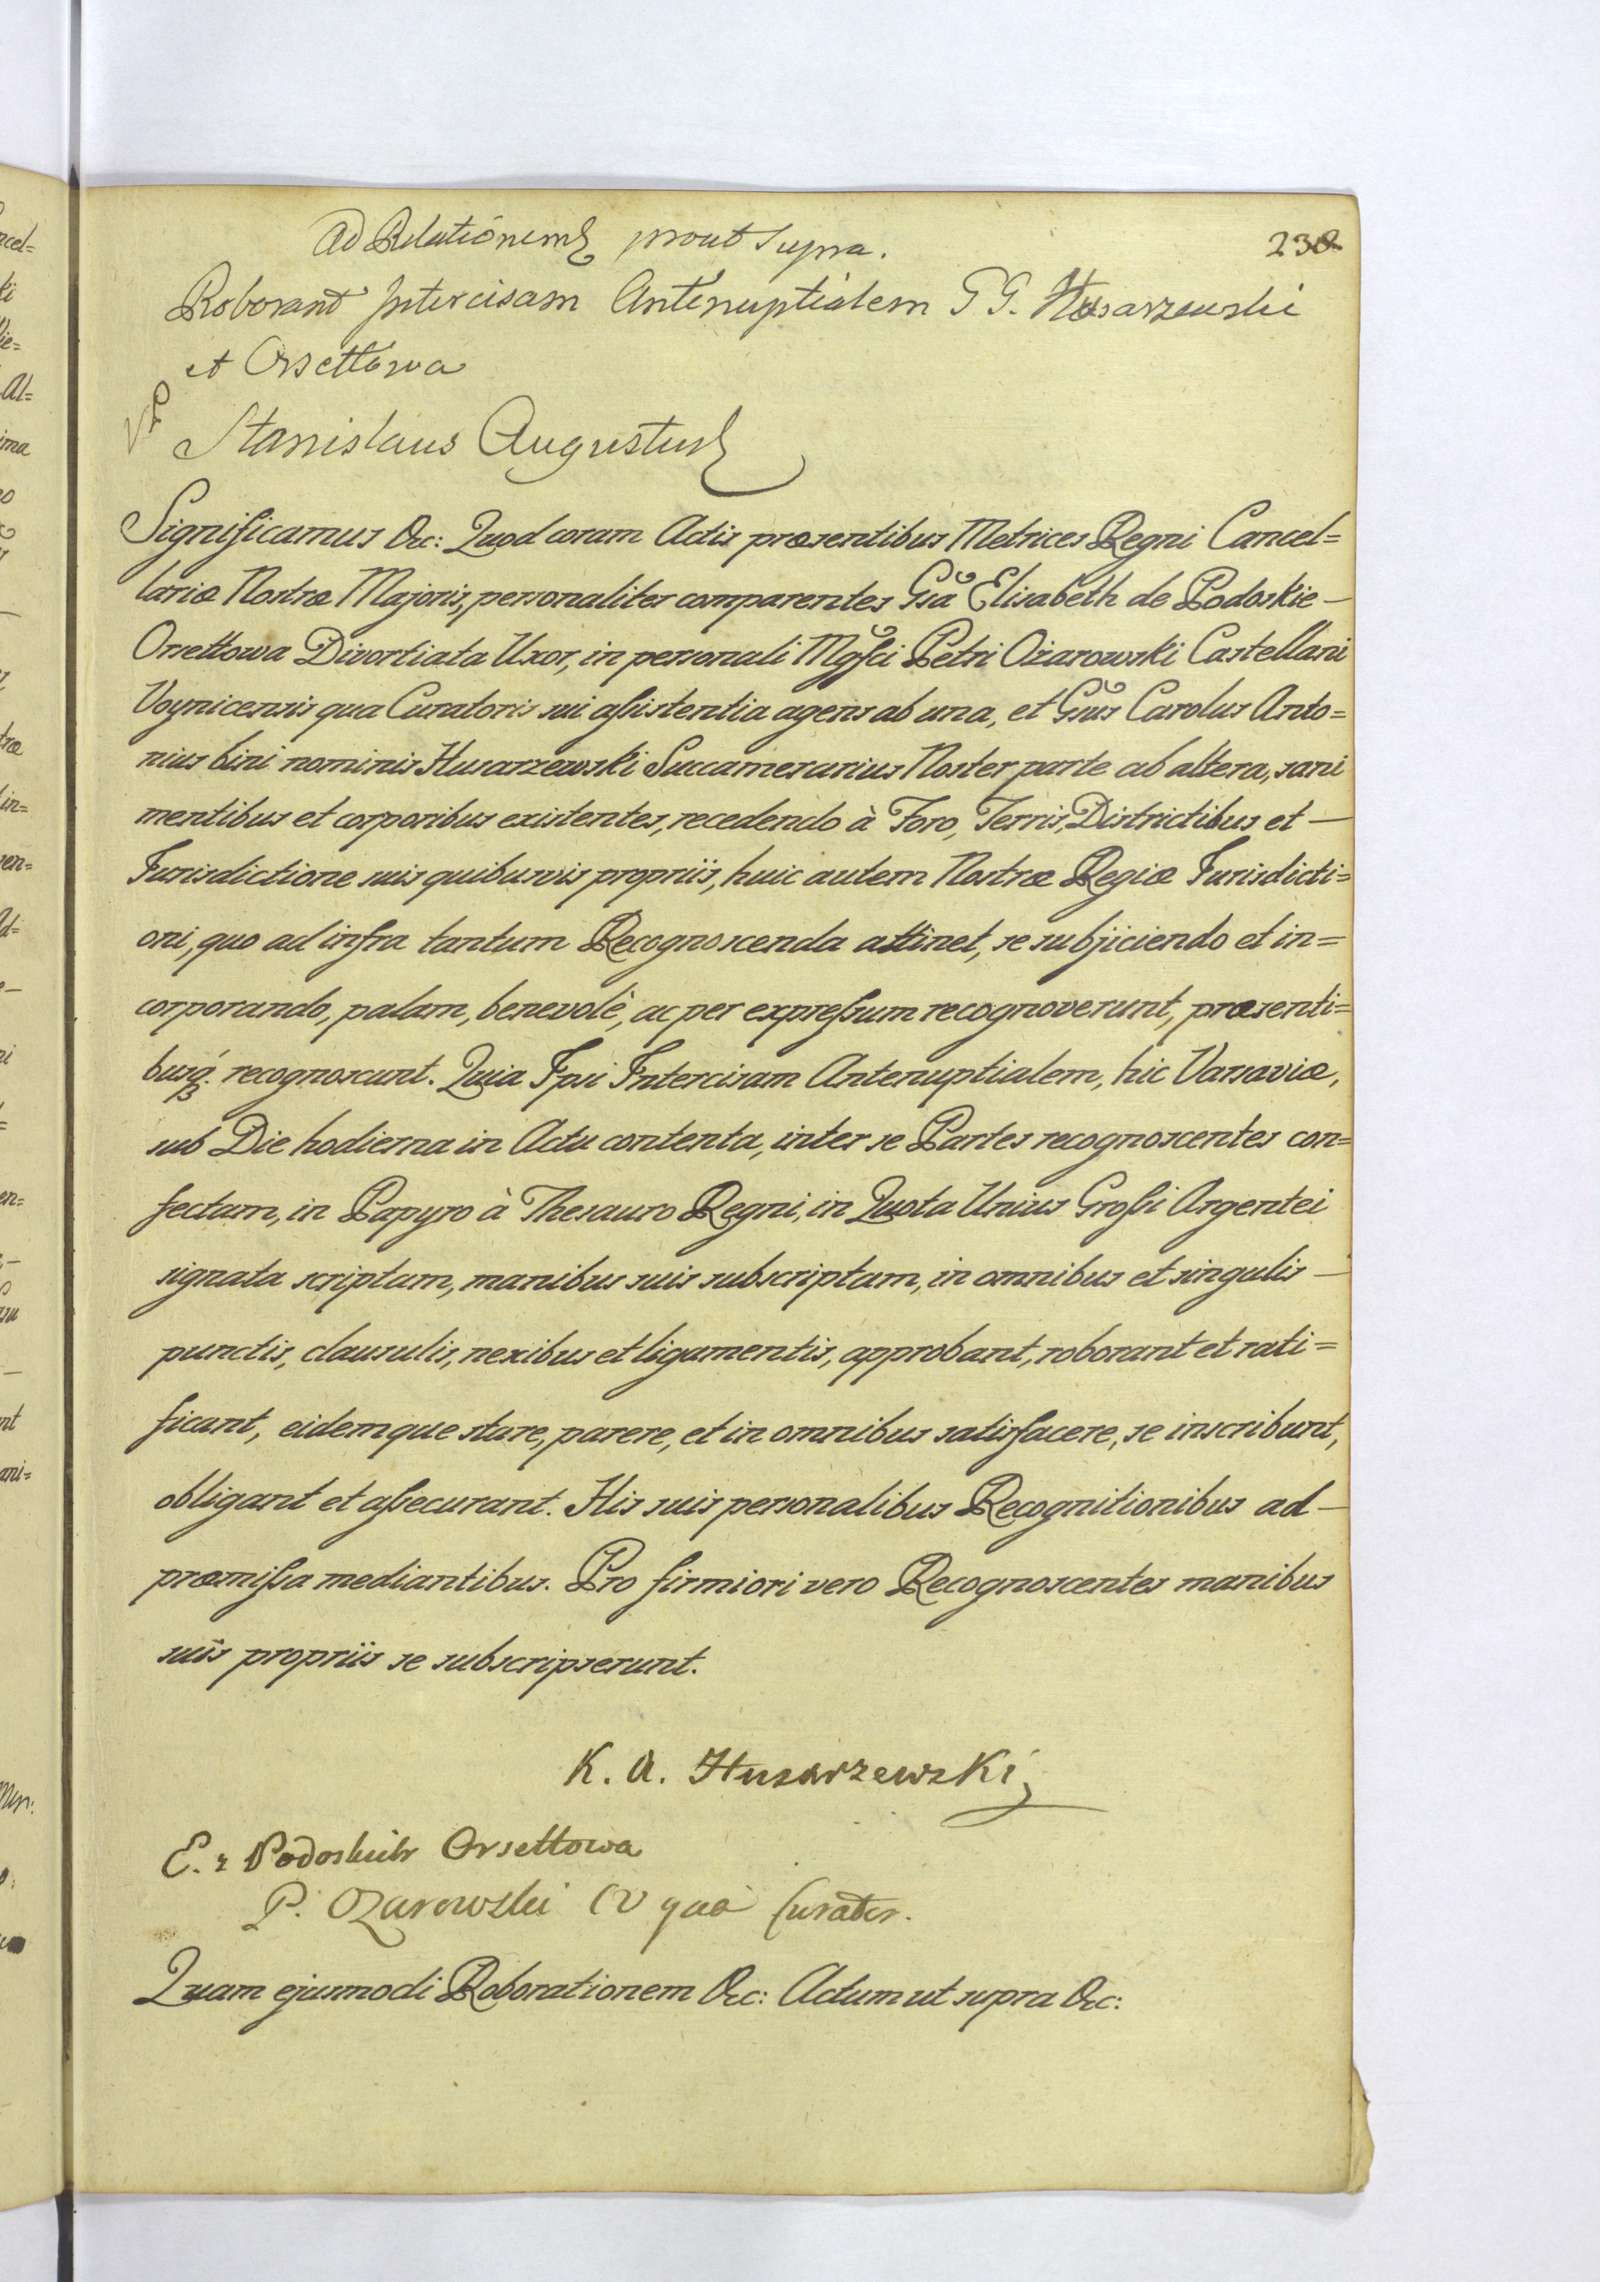 Ad Relationem prout supra.
238
Roborant Intercisam Antenuptialem G G. Husarzewski
et Orsettowa
Stanislaus Augustus
Significamus &c: Quod coram Actis præsentibus Metrices Regni Cancel=
lariæ Nostræ Majoris, personaliter comparentes Gsa Elisabeth de Podoskie —
Orsettowa Divortiata Uxor, in personali Mgfci Petri Ożarowski Castellani
Voynicensis qua Curatoris sui assistentia agens ab una, et Gsus Carolus Anto=
nius bini nominis Husarzewski Succamerarius Noster parte ab altera, sani
mentibus et corporibus existentes, recedendo à Foro, Terris, Districtibus et —
Jurisdictione suis quibusvis propriis, huic autem Nostræ Regiæ Jurisdicti=
oni, quo ad infra tantum Recognoscenda attinet, se subjiciendo et in=
corporando, palam, benevolè, ac per expressum recognoverunt, præsenti=
busq. recognoscunt. Quia Ipsi Intercisam Antenuptialem, hic Varsaviæ,
sub Die hodierna in Actu contenta, inter se Partes recognoscentes con=
fectam, in Papyro à Thesauro Regni, in Quota Unius Grossi Argentei
signata scriptam, manibus suis subscriptam, in omnibus et singulis —
punctis, clausulis, nexibus et ligamentis, approbant, roborant et rati=
ficant, eidemque stare, parere, et in omnibus satisfacere, se inscribunt,
obligant et assecurant. His suis personalibus Recognitionibus ad —
præmissa mediantibus. Pro firmiori vero Recognoscentes manibus
suis propriis se subscripserunt.
K. A. Husarzewski
E. z Podoskich Orsettowa
P. Ozarowski CV qua Curator.
Quam ejusmodi Roborationem &c: Actum ut supra &c: